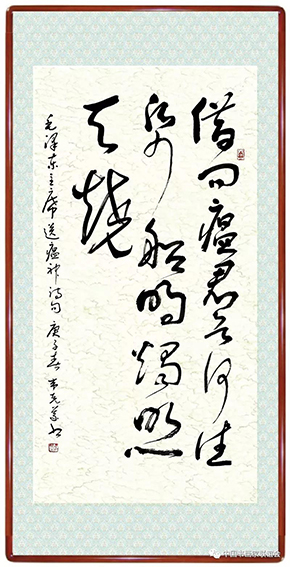 借问瘟君欲何往
纸船明烛照
天烧
毛泽东主席送瘟神诗句 庚子春
中国书画家联谊会